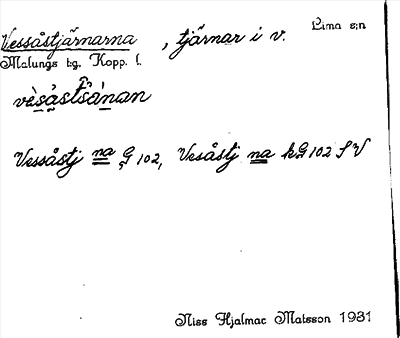 Vessåstjärnarna, tjärnar i v. Lima s:n
Malungs tg. Kopp. l.
vèsåstšànan
Vessåstj na G 102, Vesåstj na kG 102 SV
Niss Hjalmar Matsson 1931